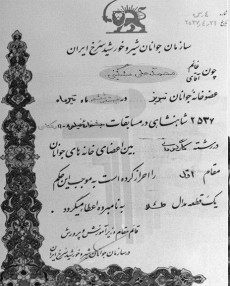 سازمان جوانان شیر و خورشید سرخ ایران
چون خانم
عضو خانه جوانان تبریز در ماه تیرماه
۲۵۳۷ شاهنشاهی در مسابقات
در رشته بین اعضای خانه های جوانان
مقام اول را احراز کرده است به موجب این حکم
یک قطعه مدال طلا به نامبرده اعطا میگردد
قائم مقام وزیر آموزش و پرورش
در سازمان جوانان شیر و خورشید سرخ ایران